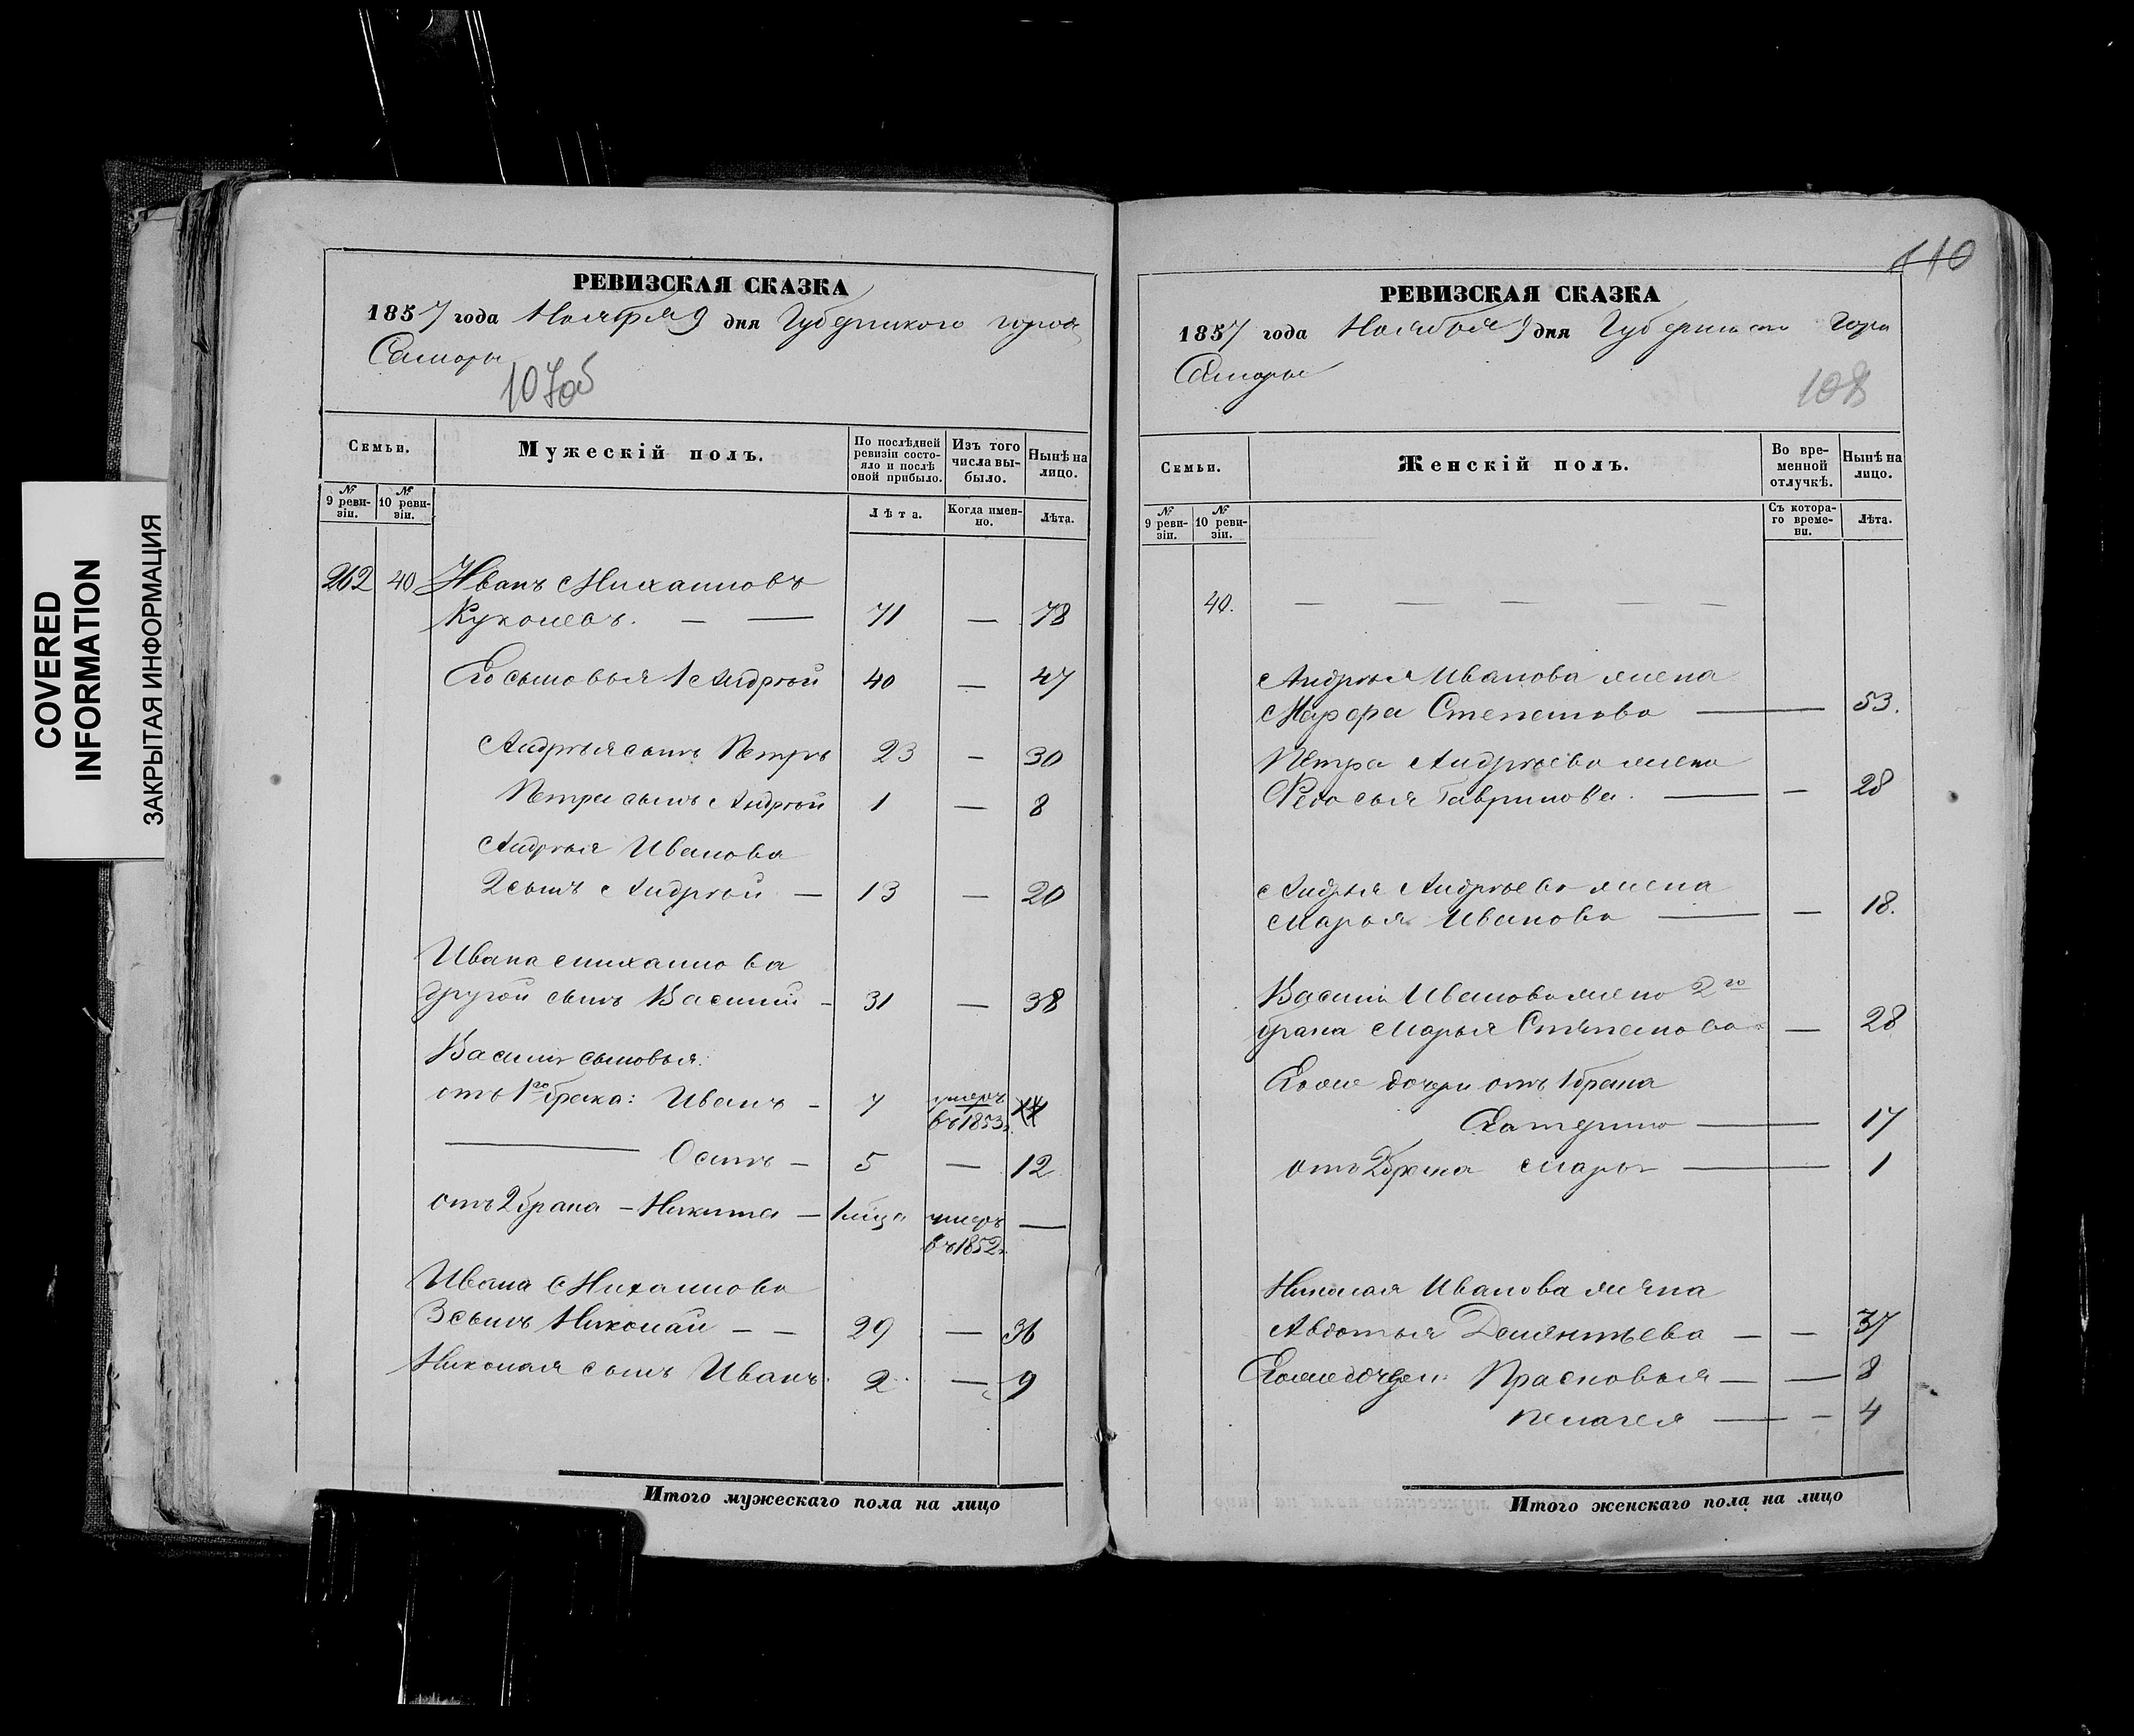 COVERED
INFORMATION
ЗАКРЫТАЯ ИНФОРМАЦИЯ
РЕВИЗСКАЯ СКАЗКА
1857 года Ноября 9 дня Губернского города
Самары
107об
Семьи.
Мужескій полъ.
По послѣдней ревизіи состояло и послѣ оной прибыло.
Изъ того числа выбыло.
Нынѣ на лицо.
№ 9 ревизіи.
№ 10 ревизіи.
Лѣта.
Когда именно.
Лѣта.
262 40 Иванъ Михаиловъ
Куколевъ. — — 71 — 78
Его сыновья 1 Андрѣй 40 — 47
Андрѣя сынъ Петръ 23 — 30
Петра сынъ Андрѣй 1 — 8
Андрѣя Иванова
2 сынъ Андрѣй — 13 — 20
Ивана Михаилова
другой сынъ Василий - 31 — 38
Василия сыновья:
отъ 1го брака: Иванъ - 7 умеръ
въ 1853г.
— Осипъ - 5 — 12
отъ 2 брака - Никита - умеръ —
въ 1852г.
Ивана Михаилова
3 сынъ Николай - - 29 — 36
Николая сынъ Иванъ 2 — 9
Итого мужескаго пола на лицо
110
РЕВИЗСКАЯ СКАЗКА
1857 года Ноября 9 дня Губернскаго
Самары
108
Семьи.
Женскій полъ.
Во временной отлучкѣ.
Нынѣ на лицо.
№ 9 ревизіи.
№ 10 ревизіи.
Съ котораго времени.
Лѣта.
40. — — — — —
Андрѣя Иванова жена
Марфа Степанова — 53.
Петра Андрѣева жена
Федосья Гаврилова. — — 28
Андрѣя Андрѣева жена
Марья Иванова — — 18.
Василия Иванова жена 2го
брака Марья Степанова — 28
Его же дочери отъ 1 брака
Екатерина — 17
отъ 2 брака Марья — 1
Николая Иванова жена
Авдотья Дементьева — — 37
Его же дочери: Прасковья — — 8
Пелагея — - 4
Итого женскаго пола на лицо